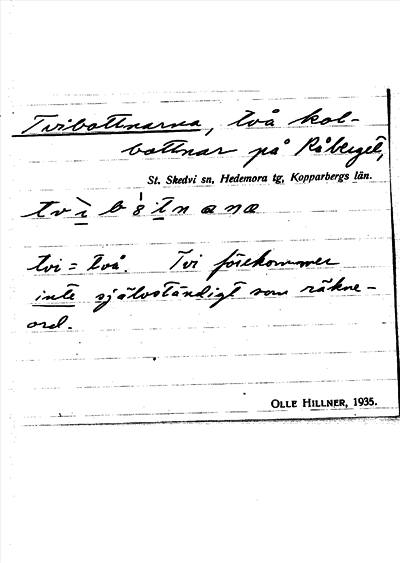 Tvibottnarna, två kol-
bottnar på Råberget,
St. Skedvi sn, Hedemora tg, Kopparbergs län.
tvi = två. Tvi förekommer
inte självständigt som räkne-
ord.
OLLE HILLNER, 1935.